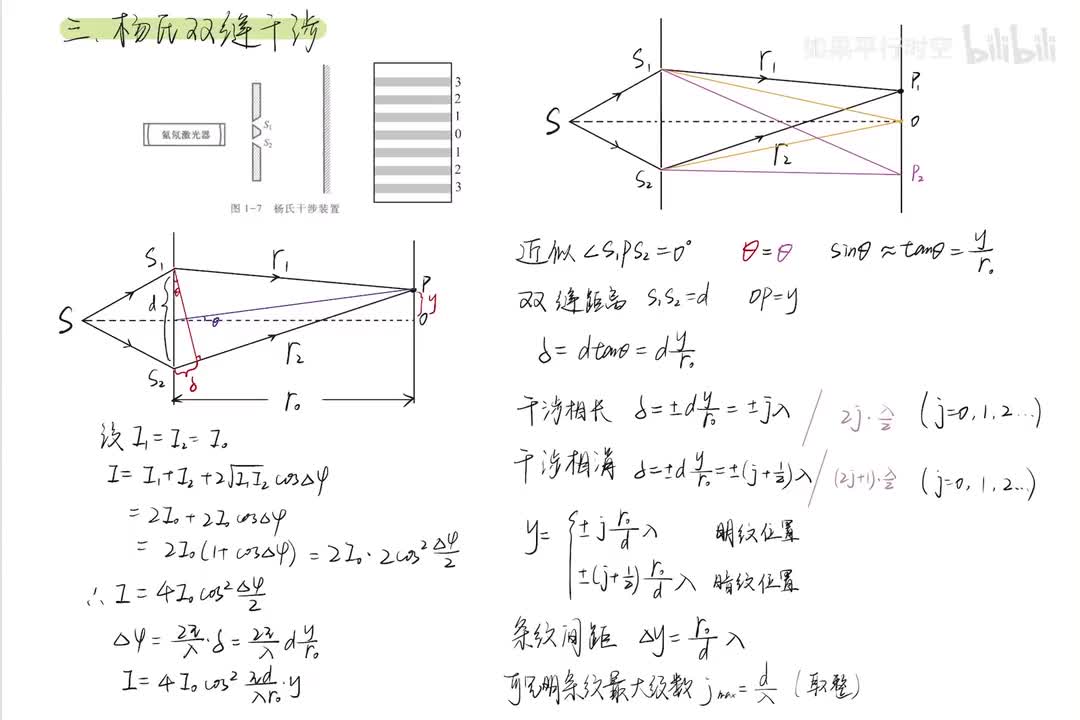 三、杨氏双缝干涉
如果平行时空 bilibili
氦氖激光器
S₁
S₂
3
2
1
0
1
2
3
图 1-7 杨氏干涉装置
S
S₁
S₂
r₁
r₂
P₁
O
P₂
S
S₁
S₂
d
θ
θ
δ
r₁
r₂
P
y
O
r₀
设 I₁=I₂=I₀
I=I₁+I₂+2√(I₁I₂) cosΔφ
=2I₀+2I₀cosΔφ
=2I₀(1+cosΔφ)=2I₀·2cos²Δφ/2
∴ I=4I₀cos²Δφ/2
Δφ=2π/λ·δ=2π/λ d y/r₀
I=4I₀cos² πd/λr₀·y
近似∠S₁PS₂=0° θ=θ sinθ≈tanθ=y/r₀
双缝距离 S₁S₂=d OP=y
δ=dtanθ=d y/r₀
干涉相长 δ=±d y/r₀=±jλ / 2j·λ/2 (j=0,1,2…)
干涉相消 δ=±d y/r₀=±(j+1/2)λ / (2j+1)·λ/2 (j=0,1,2…)
y={±j r₀/d λ 明纹位置
±(j+1/2) r₀/d λ 暗纹位置
条纹间距 Δy=r₀/d λ
可见明条纹最大级数 jmax=d/λ (取整)